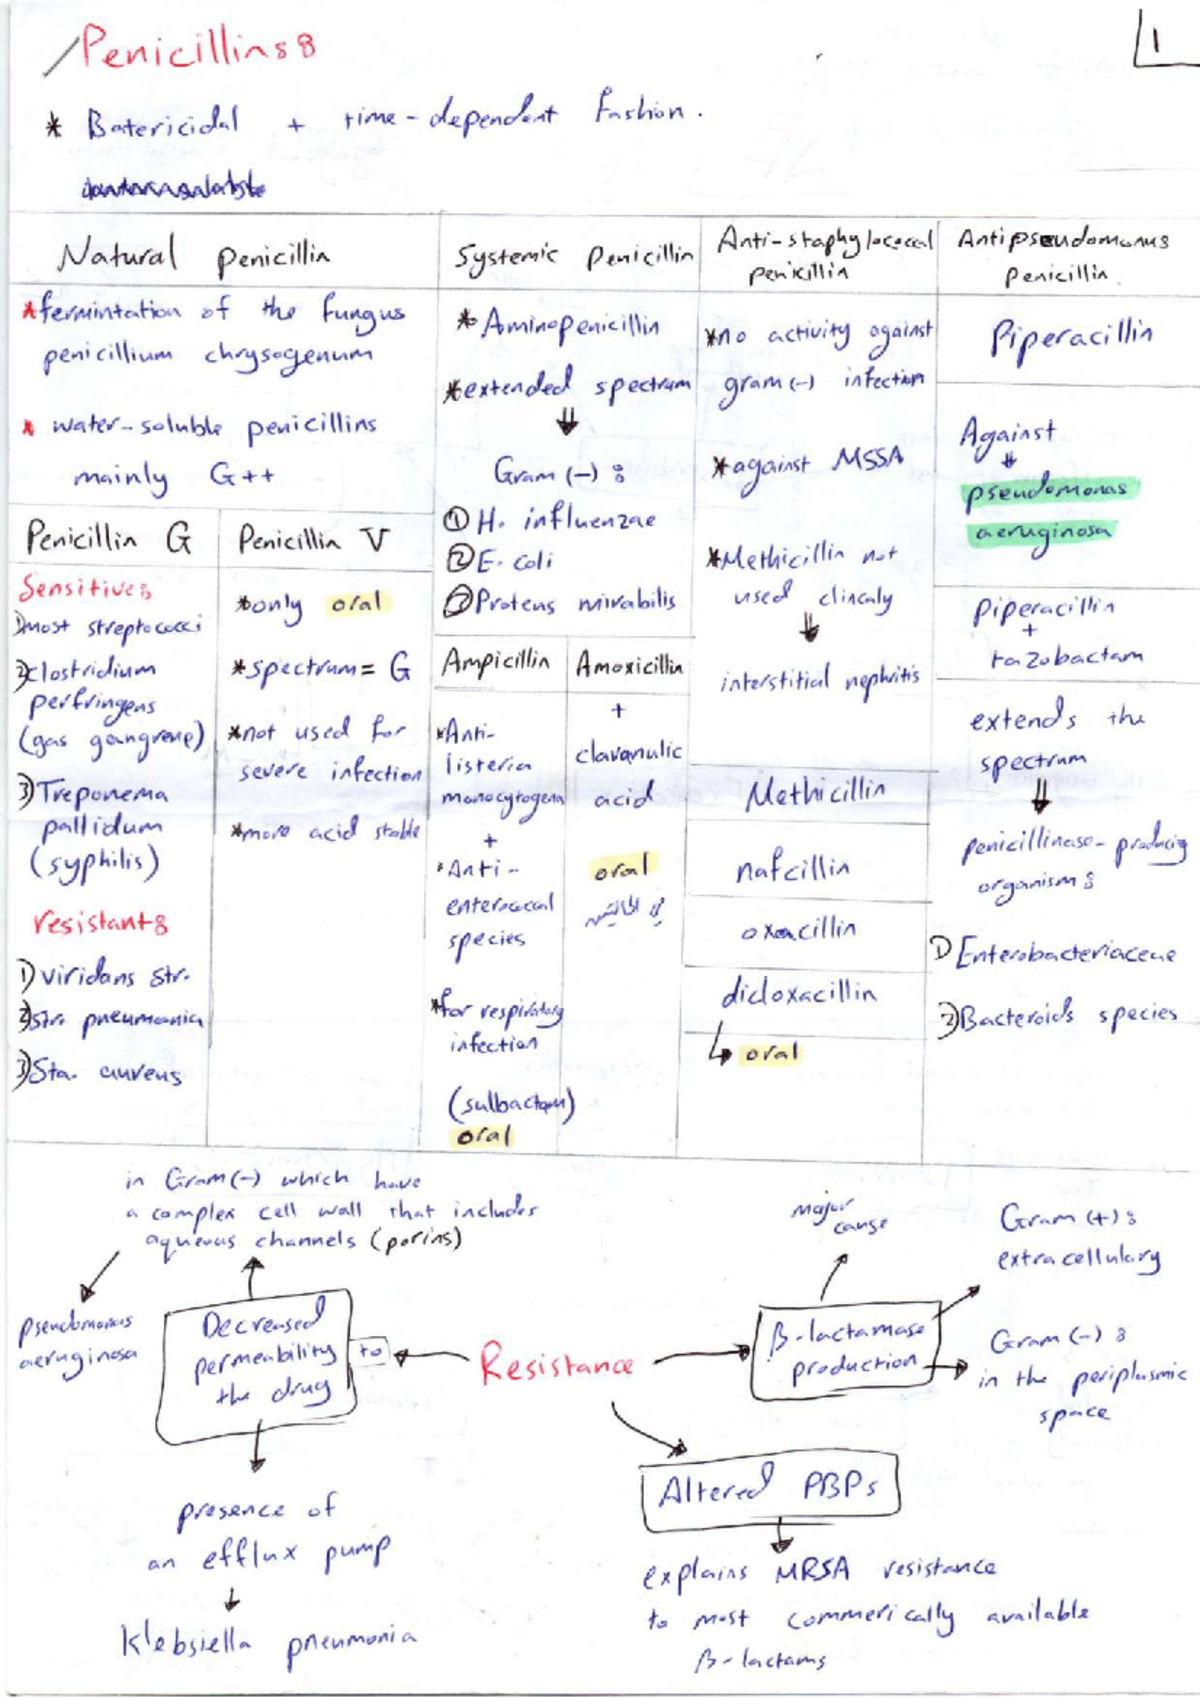 Penicillins:
1
* Batericidal + time-dependent fashion.
Natural penicillin
*fermintation of the fungus
penicillium chrysogenum
* water-soluble penicillins
mainly G++
Penicillin G
Sensitive:
1)most streptococci
2)clostridium
perfringens
(gas gangrene)
3)Treponema
pallidum
(syphilis)
resistant:
1)viridans str.
2)str. pneumonia
3)Sta. aureus
Penicillin V
*only oral
*spectrum= G
*not used for
severe infection
*more acid stable
Systemic penicillin
*Aminopenicillin
*extended spectrum
⇓
Gram (-) :
① H. influenzae
② E. coli
③ Proteus mirabilis
Ampicillin
*Anti-
listeria
monocytogena
+
*Anti-
enterococcal
species
*for respiratory
infection
(sulbactam)
oral
Amoxicillin
+
clavanulic
acid
oral
Anti-staphylococcal
penicillin
*no activity against
gram (-) infection
*against MSSA
*Methicillin not
used clincaly
⇓
interstitial nephritis
Methicillin
nafcillin
oxacillin
dicloxacillin
↳ oral
Antipseudomonus
penicillin.
Piperacillin
Against
↓
pseudomonas
aeruginosa
piperacillin
+
tazobactam
extends the
spectrum
⇓
penicillinase-producig
organism:
1) Enterobacteriaceae
2) Bacteroids species
in Gram(-) which have
a complex cell wall that includes
aqueous channels (porins)
pseudomonas
aeruginosa
Decreased
permeability to
the drug
presence of
an efflux pump
↓
Klebsiella pneumonia
Resistance
major
cause
β-lactamase
production
Gram (+) :
extracellulary
Gram (-) :
in the periplasmic
space
Altered PBPs
explains MRSA resistance
to most commerically available
β-lactams